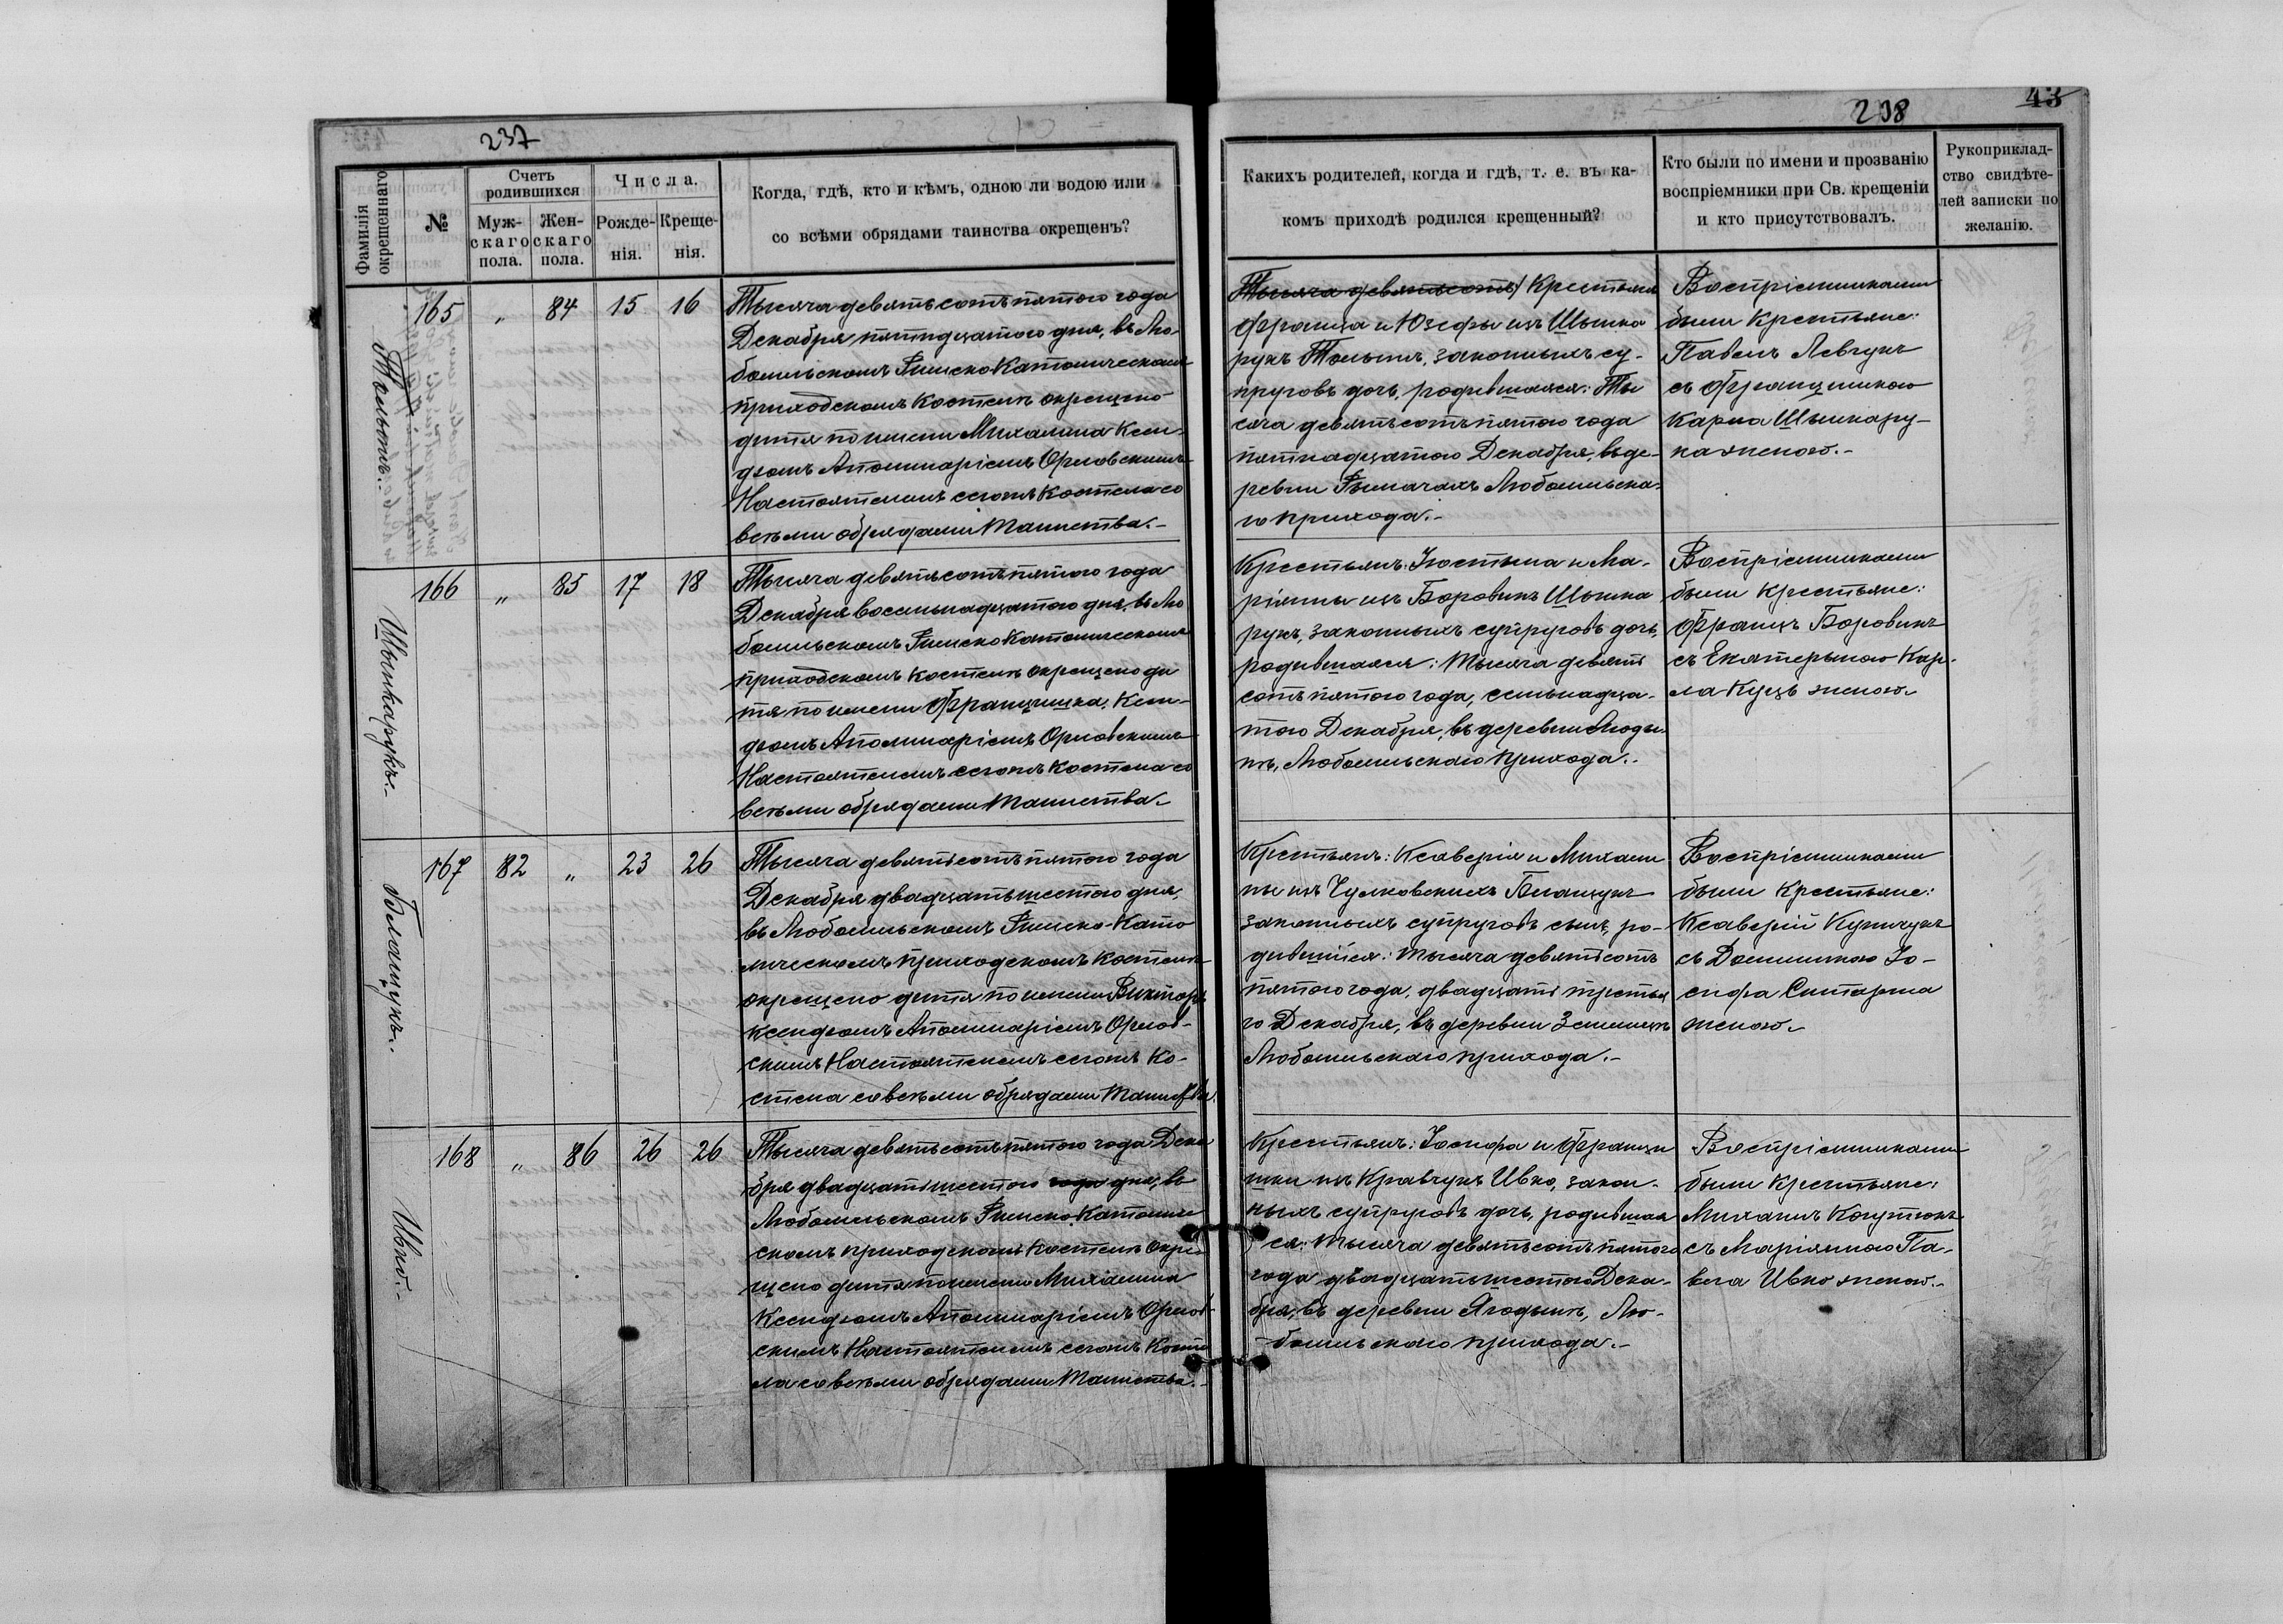 237
Фамилія окрещеннаго.
№
Счетъ родившихся
Муж-
скаго
пола.
Жен-
скаго
пола.
Числа.
Рожде-
нія.
Креще-
нія.
Когда, гдѣ, кто и кѣмъ, одною ли водою или
со всѣми обрядами таинства окрещенъ?
165 „ 84 15 16
Тысяча девятьсотъ пятого года
Декабря пятнадцатого дня, въ Лю-
бомльскомъ Римско Католическомъ
приходскомъ Костелѣ окрещено
дитя по имени Михалина Ксен-
дзомъ Аполинаріемъ Орловскимъ
Настоятелемъ сегожъ Костела со
всѣми обрядами Таинства.-
166 „ 85 17 18
Шынкарукъ.-
Тысяча девятьсотъ пятого года
Декабря восемьнадцатого дня, въ Лю
бомльскомъ Римско Католическомъ
приходскомъ Костелѣ окрещено ди
тя по имени Францишка, Ксен-
дзомъ Аполинаріемъ Орловскимъ
Настоятелемъ сегожъ Костела со
всѣми обрядами Таинства.-
167 82 „ 23 26
Билащукъ.-
Тысяча девятьсотъ пятого года
Декабря двадцать шестого дня,
въ Любомльскомъ Римско-Като
лическомъ приходскомъ Костелѣ
окрещено дитя по имени Викторъ
Ксендзомъ Аполинаріемъ Орлов-
скимъ Настоятелемъ сегожъ Ко-
стела со всѣми обрядами Таинства.
168 „ 86 26 26
Ивко.-
Тысяча девятьсотъ пятого года Дека
бря двадцать шестого года дня, въ
Любомльскомъ Римско Католиче
скомъ приходскомъ Костелѣ окре
щено дитя по имени Михалина
Ксендзомъ Аполинаріемъ Орлов-
скимъ Настоятелемъ сегожъ Косте
ла со всѣми обрядами Таинства.-
43
Какихъ родителей, когда и гдѣ, т. е. въ ка-
комъ приходѣ родился крещенный?
Кто были по имени и прозванію
воспріемники при Св. крещеніи
и кто присутствовалъ.
Рукоприклад-
ство свидѣте-
лей записки по
желанію.
Тысяча девятьсотъ) Крестьянъ
Франца и Юзефы изъ Шынка
рукъ законныхъ су-
пруговъ дочь, родившаяся: Ты
сяча девятьсотъ пятого года
пятнадцатого Декабря, въ де-
ревни Рымачахъ Любомльска-
го прихода.-
Воспріемниками
были Крестьяне:
Павелъ Левчукъ
съ Францишкою
Карла Шынкару-
ка женою.-
Крестьянъ: Юстына и Ма-
ріянны изъ Боровикъ Шынка
рукъ, законныхъ супруговъ дочь,
родившаяся: Тысяча девять
сотъ пятого года, семьнадца-
того Декабря, въ деревни
Любомльскаго прихода.-
Воспріемниками
были Крестьяне:
Францъ Боровикъ
съ Екатерыною Кар-
ла Куцъ женою.-
Крестьянъ: Ксаверія и Михали
ны изъ Чулковскихъ Билащукъ
законныхъ супруговъ сынъ, ро-
дившійся: Тысяча девятьсотъ
пятого года, двадцать третья
го Декабря, въ деревни
Любомльскаго прихода.-
Воспріемниками
были Крестьяне:
Ксаверій
съ Доминикою Іо-
сифа
женою.-
Крестьянъ: Іосифа и Францы
шки изъ Кравчукъ Ивко, закон-
ныхъ супруговъ дочь, родившая
ся: Тысяча девятьсотъ пятого
года двадцать шестого Дека-
бря, въ деревни Ягодынѣ, Лю-
бомльскаго прихода.-
Воспріемниками
были Крестьяне:
Михаилъ
съ Маріянною Па-
вла Ивко женою.-